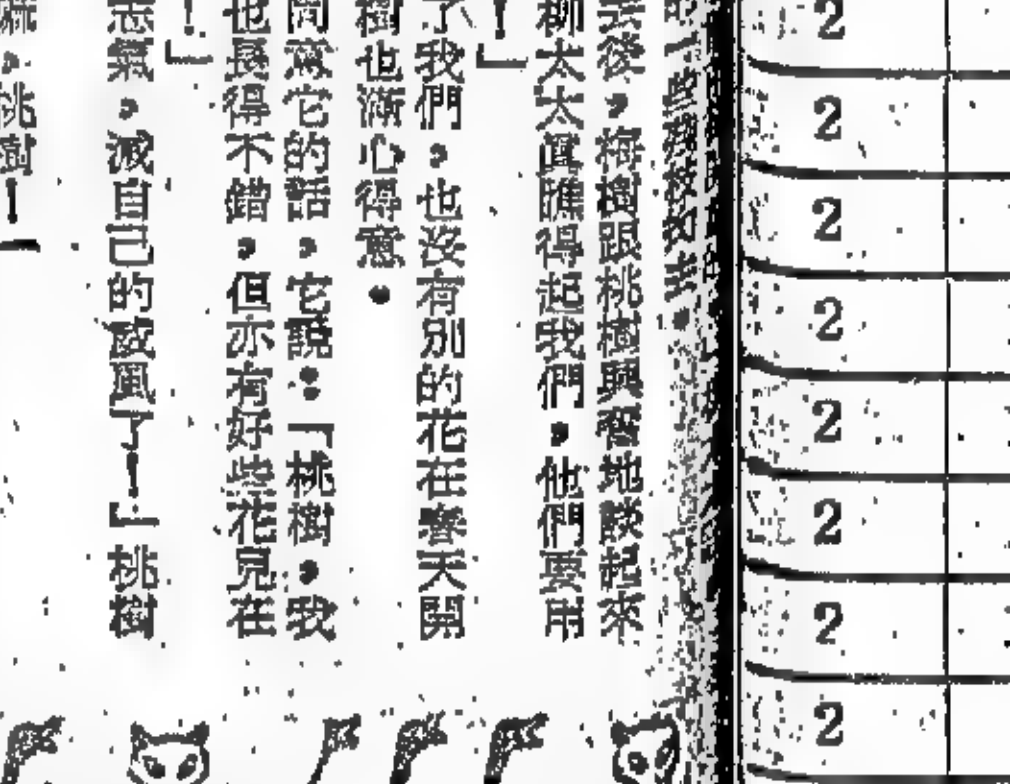 後，梅樹跟桃樹興奮地談起來
柳太太眞瞧得起我們，他們要用
！」
了我們，也沒有別的花在春天開
樹也漸心得意。
同意它的話，它說：「桃樹，我
也長得不錯，但亦有好些花見在
！」
志氣，滅自己的威風了！」桃樹
，桃樹！
2
2
2
2
2
2
2
2